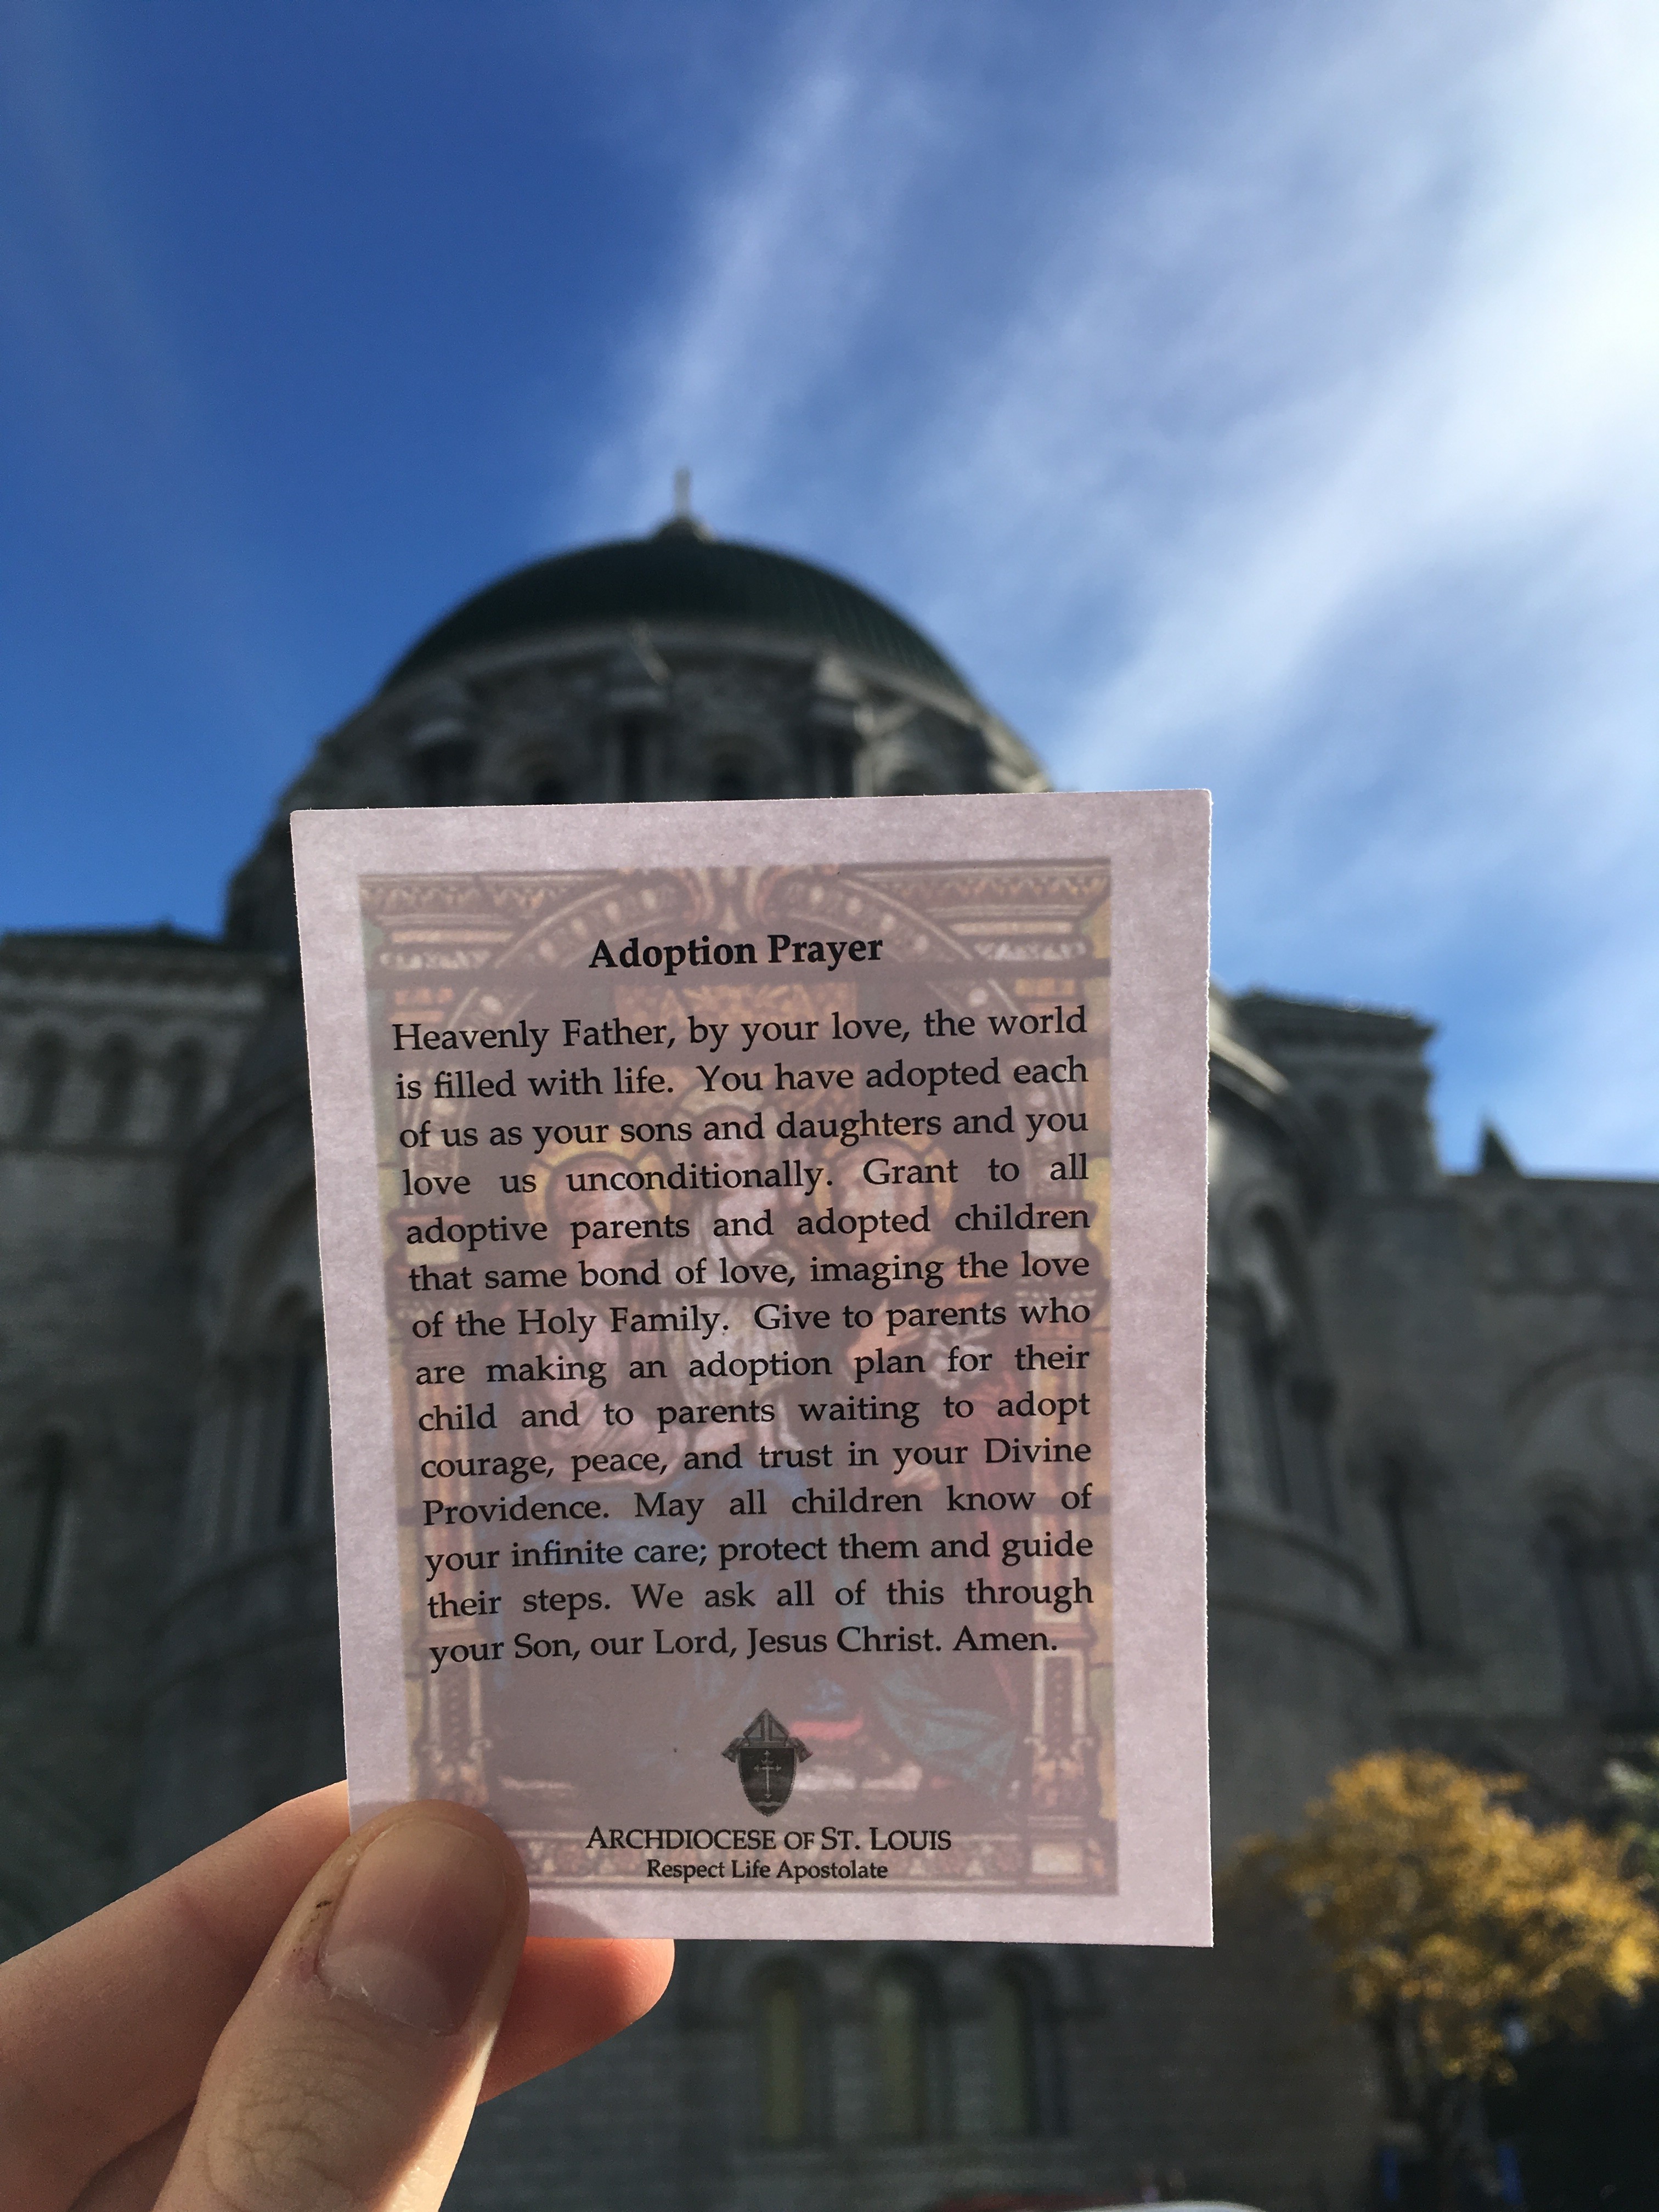 Adoption Prayer
Heavenly Father, by your love, the world
is filled with life. You have adopted each
of us as your sons and daughters and you
love us unconditionally. Grant to all
adoptive parents and adopted children
that same bond of love, imaging the love
of the Holy Family. Give to parents who
are making an adoption plan for their
child and to parents waiting to adopt
courage, peace, and trust in your Divine
Providence. May all children know of
your infinite care; protect them and guide
their steps. We ask all of this through
your Son, our Lord, Jesus Christ. Amen.
ARCHDIOCESE OF ST. LOUIS
Respect Life Apostolate